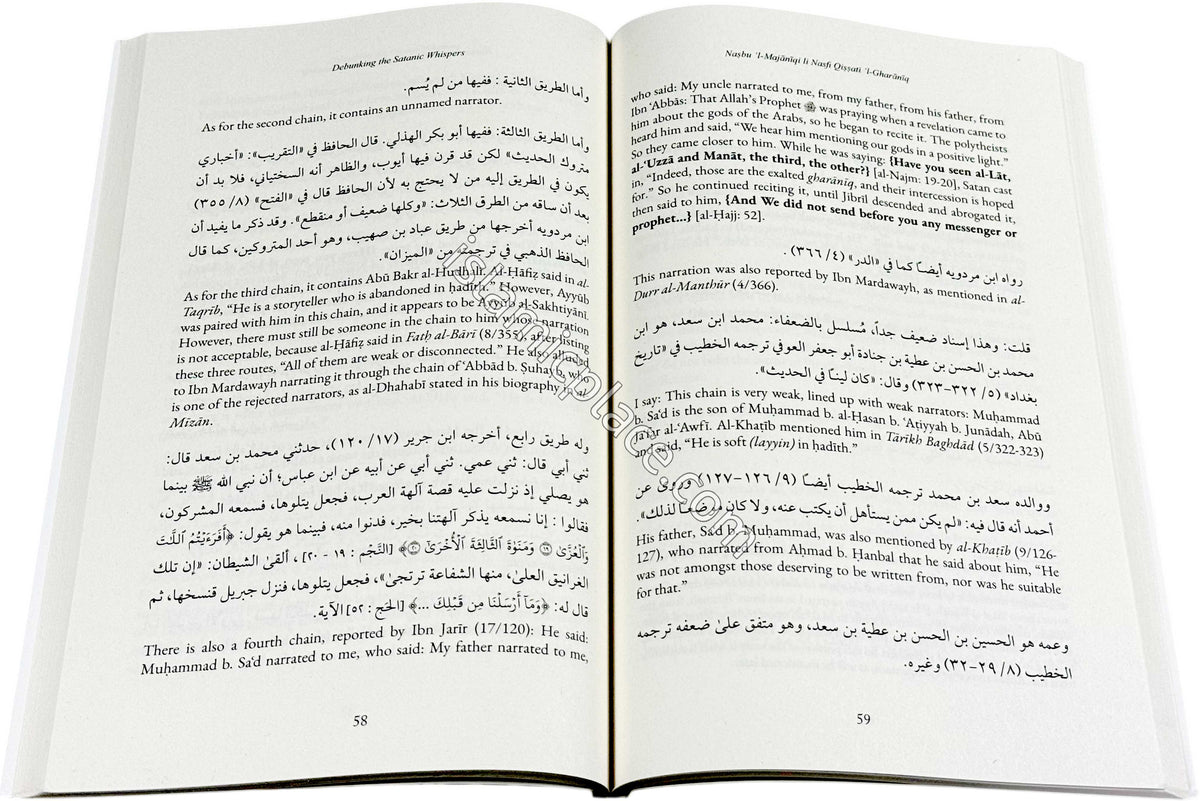 Debunking the Satanic Whispers
وأما الطريق الثانية : ففيها من لم يُسم.
As for the second chain, it contains an unnamed narrator.
وأما الطريق الثالثة: ففيها أبو بكر الهذلي. قال الحافظ في «التقريب»: «أخباري
متروك الحديث» لكن قد قرن فيها أيوب، والظاهر أنه السختياني، فلا بد أن
يكون في الطريق إليه من لا يحتج به لأن الحافظ قال في «الفتح» (٨/ ٣٥٥)
بعد أن ساقه من الطرق الثلاث: «وكلها ضعيف أو منقطع». وقد ذكر ما يفيد أن
ابن مردويه أخرجها من طريق عباد بن صهيب، وهو أحد المتروكين، كما قال
الحافظ الذهبي في ترجمته من «الميزان».
As for the third chain, it contains Abū Bakr al-Hudhalī. Al-Ḥāfiẓ said in al-
Taqrīb, “He is a storyteller who is abandoned in ḥadīth.” However, Ayyūb
was paired with him in this chain, and it appears to be Ayyūb al-Sakhtiyānī.
However, there must still be someone in the chain to him whose narration
is not acceptable, because al-Ḥāfiẓ said in Fatḥ al-Bārī (8/355), after listing
these three routes, “All of them are weak or disconnected.” He also alluded
to Ibn Mardawayh narrating it through the chain of ‘Abbād b. Ṣuhayb, who
is one of the rejected narrators, as al-Dhahabī stated in his biography in al-
Mīzān.
وله طريق رابع، أخرجه ابن جرير (١٧/ ١٢٠)، حدثني محمد بن سعد قال:
ثني أبي قال: ثني عمي. ثني أبي عن أبيه عن ابن عباس؛ أن نبي الله ﷺ بينما
هو يصلي إذ نزلت عليه قصة آلهة العرب، فجعل يتلوها، فسمعه المشركون،
فقالوا : إنا نسمعه يذكر آلهتنا بخير، فدنوا منه، فبينما هو يقول: ﴿أَفَرَءَيْتُمُ ٱللَّٰتَ
وَٱلْعُزَّىٰ ۝١٩ وَمَنَوٰةَ ٱلثَّالِثَةَ ٱلْأُخْرَىٰٓ ۝٢٠﴾ [النَّجْم : ١٩ - ٢٠] ، ألقىٰ الشيطان: «إن تلك
الغرانيق العلىٰ، منها الشفاعة ترتجىٰ»، فجعل يتلوها، فنزل جبريل فنسخها، ثم
قال له: ﴿وَمَآ أَرْسَلْنَا مِن قَبْلِكَ ...﴾ [الحَج : ٥٢] الآية.
There is also a fourth chain, reported by Ibn Jarīr (17/120): He said:
Muḥammad b. Sa‘d narrated to me, who said: My father narrated to me,
58
Naṣbu ’l-Majānīqi li Nasfi Qiṣṣati ’l-Gharānīq
who said: My uncle narrated to me, from my father, from his father, from
Ibn ‘Abbās: That Allah’s Prophet ﷺ was praying when a revelation came to
him about the gods of the Arabs, so he began to recite it. The polytheists
heard him and said, “We hear him mentioning our gods in a positive light.”
So they came closer to him. While he was saying: {Have you seen al-Lāt,
al-‘Uzzā and Manāt, the third, the other?} [al-Najm: 19-20], Satan cast
in, “Indeed, those are the exalted gharānīq, and their intercession is hoped
for.” So he continued reciting it, until Jibrīl descended and abrogated it,
then said to him, {And We did not send before you any messenger or
prophet...} [al-Ḥajj: 52].
رواه ابن مردويه أيضاً كما في «الدر» (٤/ ٣٦٦) .
This narration was also reported by Ibn Mardawayh, as mentioned in al-
Durr al-Manthūr (4/366).
قلت: وهذا إسناد ضعيف جداً، مُسلسل بالضعفاء: محمد ابن سعد، هو ابن
محمد بن الحسن بن عطية بن جنادة أبو جعفر العوفي ترجمه الخطيب في «تاريخ
بغداد» (٥/ ٣٢٢-٣٢٣) وقال: «كان ليناً في الحديث».
I say: This chain is very weak, lined up with weak narrators: Muḥammad
b. Sa‘d is the son of Muḥammad b. al-Ḥasan b. ‘Aṭiyyah b. Junādah, Abū
Ja‘far al-‘Awfī. Al-Khaṭīb mentioned him in Tārīkh Baghdād (5/322-323)
and said, “He is soft (layyin) in ḥadīth.”
ووالده سعد بن محمد ترجمه الخطيب أيضاً (٩/ ١٢٦-١٢٧) وروىٰ عن
أحمد أنه قال فيه: «لم يكن ممن يستأهل أن يكتب عنه، ولا كان موضعاً لذلك».
His father, Sa‘d b. Muḥammad, was also mentioned by al-Khaṭīb (9/126-
127), who narrated from Aḥmad b. Hanbal that he said about him, “He
was not amongst those deserving to be written from, nor was he suitable
for that.”
وعمه هو الحسين بن الحسن بن عطية بن سعد، وهو متفق علىٰ ضعفه ترجمه
الخطيب (٨/ ٢٩-٣٢) وغيره.
59
islamicplace.com